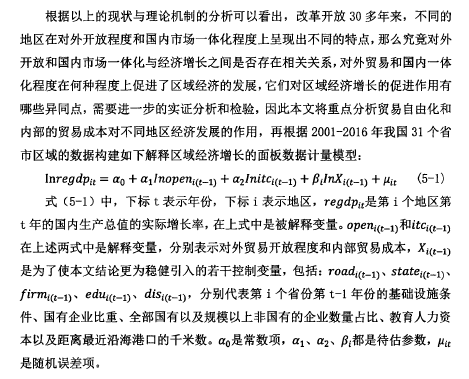 根据以上的现状与理论机制的分析可以看出，改革开放 30 多年来，不同的
地区在对外开放程度和国内市场一体化程度上呈现出不同的特点，那么究竟对外
开放和国内市场一体化与经济增长之间是否存在相关关系，对外贸易和国内一体
化程度在何种程度上促进了区域经济的发展，它们对区域经济增长的促进作用有
哪些异同点，需要进一步的实证分析和检验，因此本文将重点分析贸易自由化和
内部的贸易成本对不同地区经济发展的作用，再根据 2001-2016 年我国 31 个省
市区域的数据构建如下解释区域经济增长的面板数据计量模型：
lnregdp_{it} = α_0 + α_1lnopen_{i(t−1)} + α_2lnitc_{i(t−1)} + β_ilnX_{i(t−1)} + μ_{it} (5-1)
式（5-1）中，下标 t 表示年份，下标 i 表示地区，regdp_{it}是第 i 个地区第
t 年的国内生产总值的实际增长率，在上式中是被解释变量。open_{i(t−1)}和itc_{i(t−1)}
在上述两式中是解释变量，分别表示对外贸开放程度和内部贸易成本，X_{i(t−1)}
是为了使本文结论更为稳健引入的若干控制变量，包括：road_{i(t−1)}、state_{i(t−1)}、
firm_{i(t−1)}、edu_{i(t−1)}、dis_{i(t−1)}，分别代表第 i 个省份第 t-1 年份的基础设施条
件、国有企业比重、全部国有以及规模以上非国有的企业数量占比、教育人力资
本以及距离最近沿海港口的千米数。α_0是常数项，α_1、α_2、β_i都是待估参数，μ_{it}
是随机误差项。